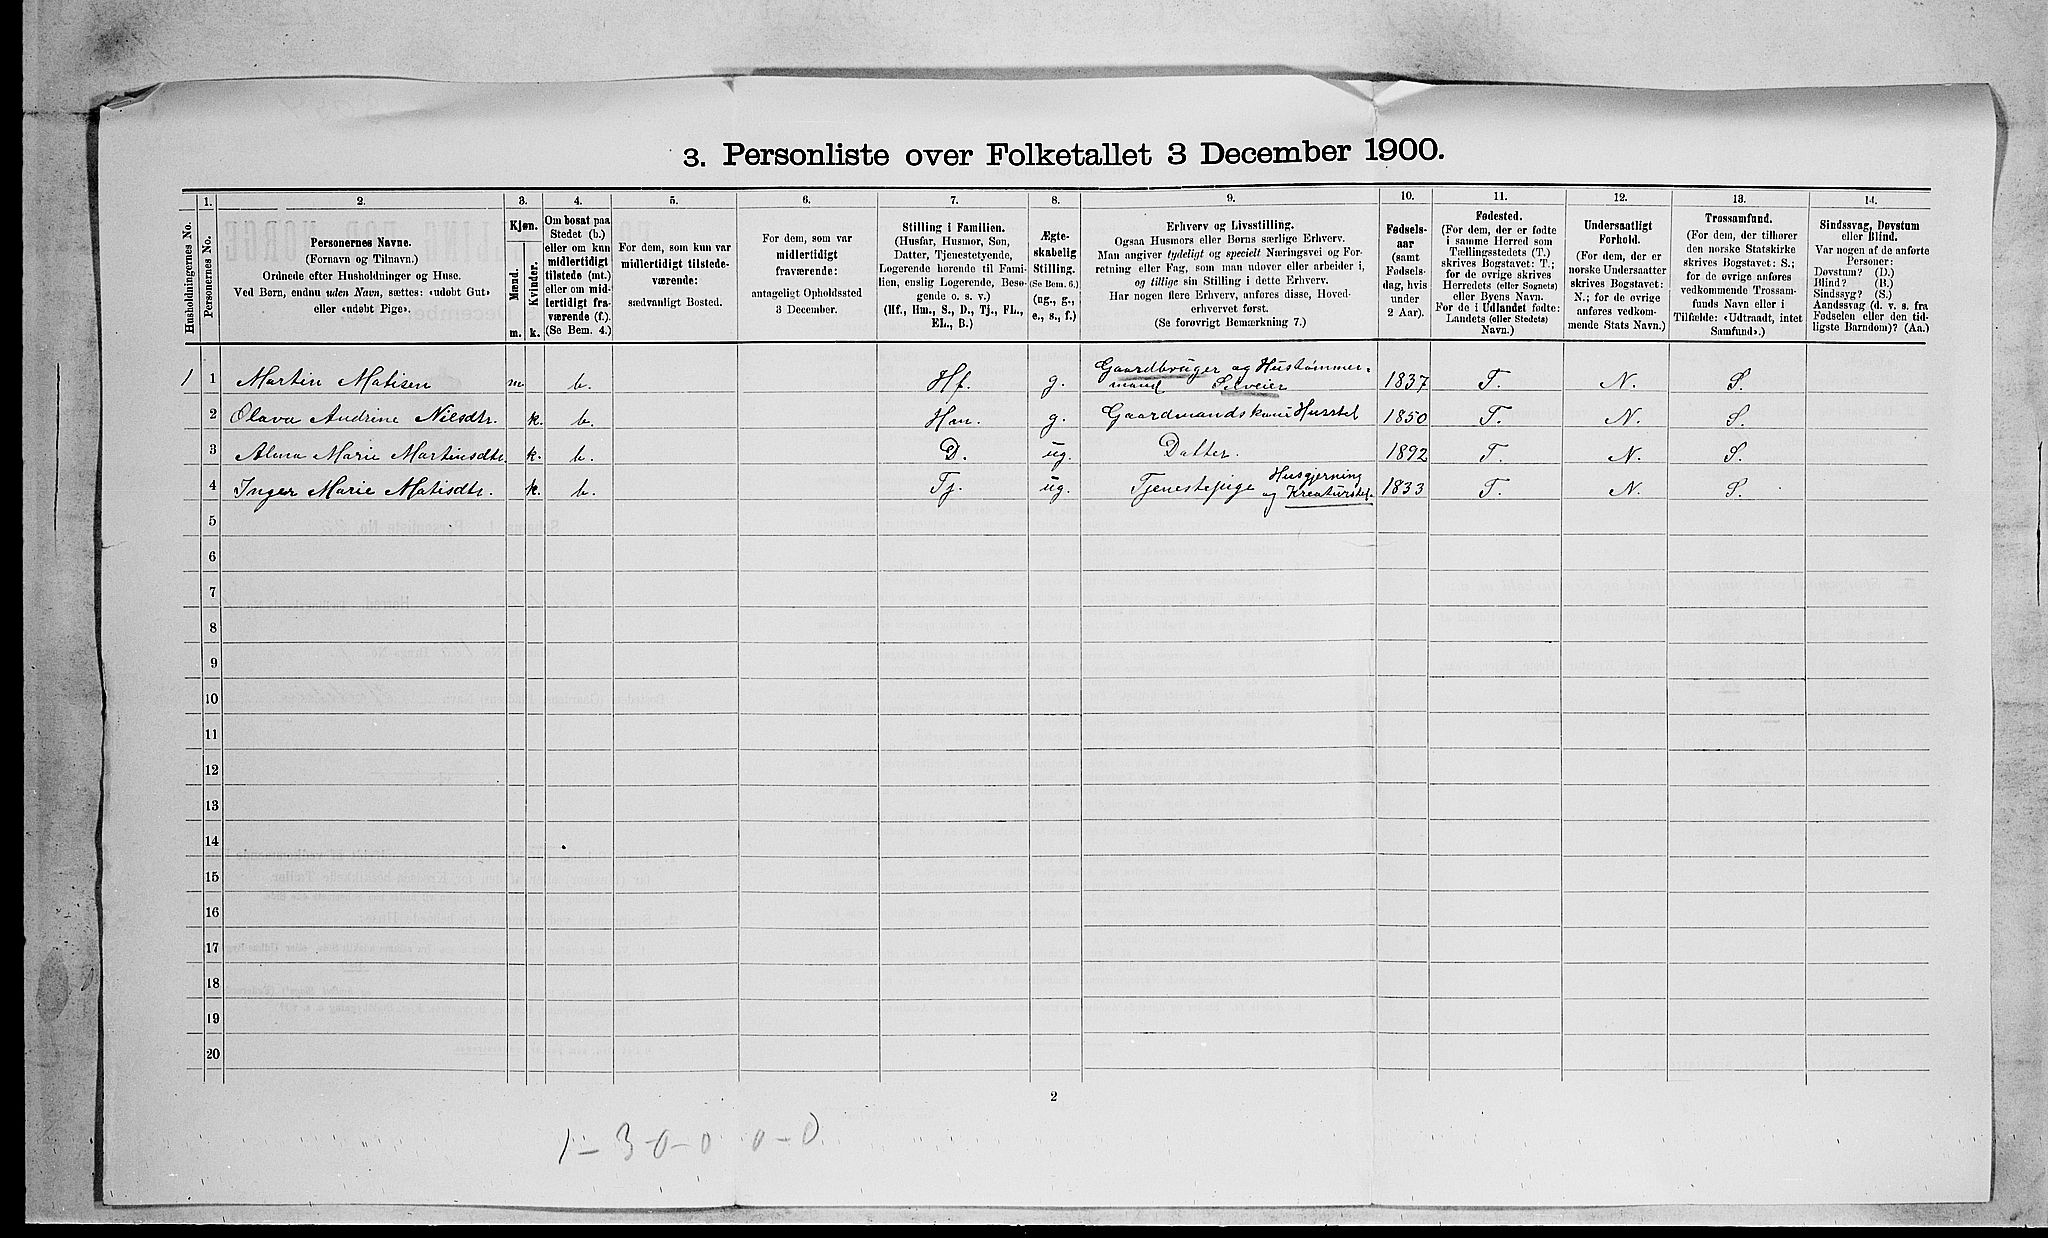 3. Personliste over Folketallet 3 December 1900.
Husholdningernes No.
1.
Personernes No.
2.
Personernes Navne.
(Fornavn og Tilnavn.)
Ordnede efter Husholdninger og Huse.
Ved Børn, endnu uden Navn, sættes: «udøbt Gut»
eller «udøbt Pige».
3.
Kjøn.
Mænd.
Kvinder.
m. k.
4.
Om bosat paa
Stedet (b.)
eller om kun
midlertidigt
tilstede (mt.)
eller om mid-
lertidigt fra-
værende (f.).
(Se Bem. 4.)
5.
For dem, som kun var
midlertidigt tilstede-
værende:
sædvanligt Bosted.
6.
For dem, som var
midlertidigt
fraværende:
antageligt Opholdssted
3 December.
7.
Stilling i Familien.
(Husfar, Husmor, Søn,
Datter, Tjenestetyende,
Logerende hørende til Fami-
lien, enslig Logerende, Besø-
gende o. s. v.)
(Hf., Hm., S., D., Tj., FL.,
EL., B.)
8.
Ægte-
skabelig
Stilling.
(Se Bem. 6.)
(ug., g.,
e., s., f.)
9.
Erhverv og Livsstilling.
Ogsaa Husmors eller Børns særlige Erhverv.
Man angiver tydeligt og specielt Næringsvei og For-
retning eller Fag, som man udøver eller arbeider i,
og tillige sin Stilling i dette Erhverv.
Har nogen flere Erhverv, anføres disse, Hoved-
erhvervet først.
(Se forøvrigt Bemærkning 7.)
10.
Fødsels-
aar
(samt
Fødsels-
dag, hvis
under
2 Aar).
11.
Fødested.
(For dem, der er fødte
i samme Herred som
Tællingsstedets (T.)
skrives Bogstavet: T.;
for de øvrige skrives
Herredets (eller Sognets)
eller Byens Navn.
For de i Udlandet fødte:
Landets (eller Stedets)
Navn.)
12.
Undersaatligt
Forhold.
(For dem, der er
norske Undersaatter
skrives Bogstavet:
N.; for de øvrige
anføres vedkom-
mende Stats Navn.)
13.
Trossamfund.
(For dem, der tilhører
den norske Statskirke
skrives Bogstavet: S.;
for de øvrige anføres
vedkommende Trossam-
funds Navn eller i
Tilfælde: «Udtraadt, intet
Samfund».)
14.
Sindssvag, Døvstum
eller Blind.
Var nogen af de anførte
Personer:
Døvstum? (D.)
Blind? (B.)
Sindssyg? (S.)
Aandssvag (d. v. s. fra
Fødselen eller den tid-
ligste Barndom)? (Aa.)
1 1 Martin Matisen m. b. Hf. g. Gaardbruger og Hustømmer-
mand Selveier 1837 T. N. S.
2 Olava Andrine Nilsdtr. k. b. Hm. g. Gaardmandskone Husstel 1850 T. N. S.
3 Alma Marie Martinsdtr. k. b. D. ug. Datter. 1892 T. N. S.
4 Inger Marie Matisdtr. k. b. Tj. ug. Tjenestepige Husgjerning
og Kreaturstel. 1833 T. N. S.
5
6
7
8
9
10
11
12
13
14
15
16
17
18
19
20
2
1 – 3 – 0 – 0 0 – 0